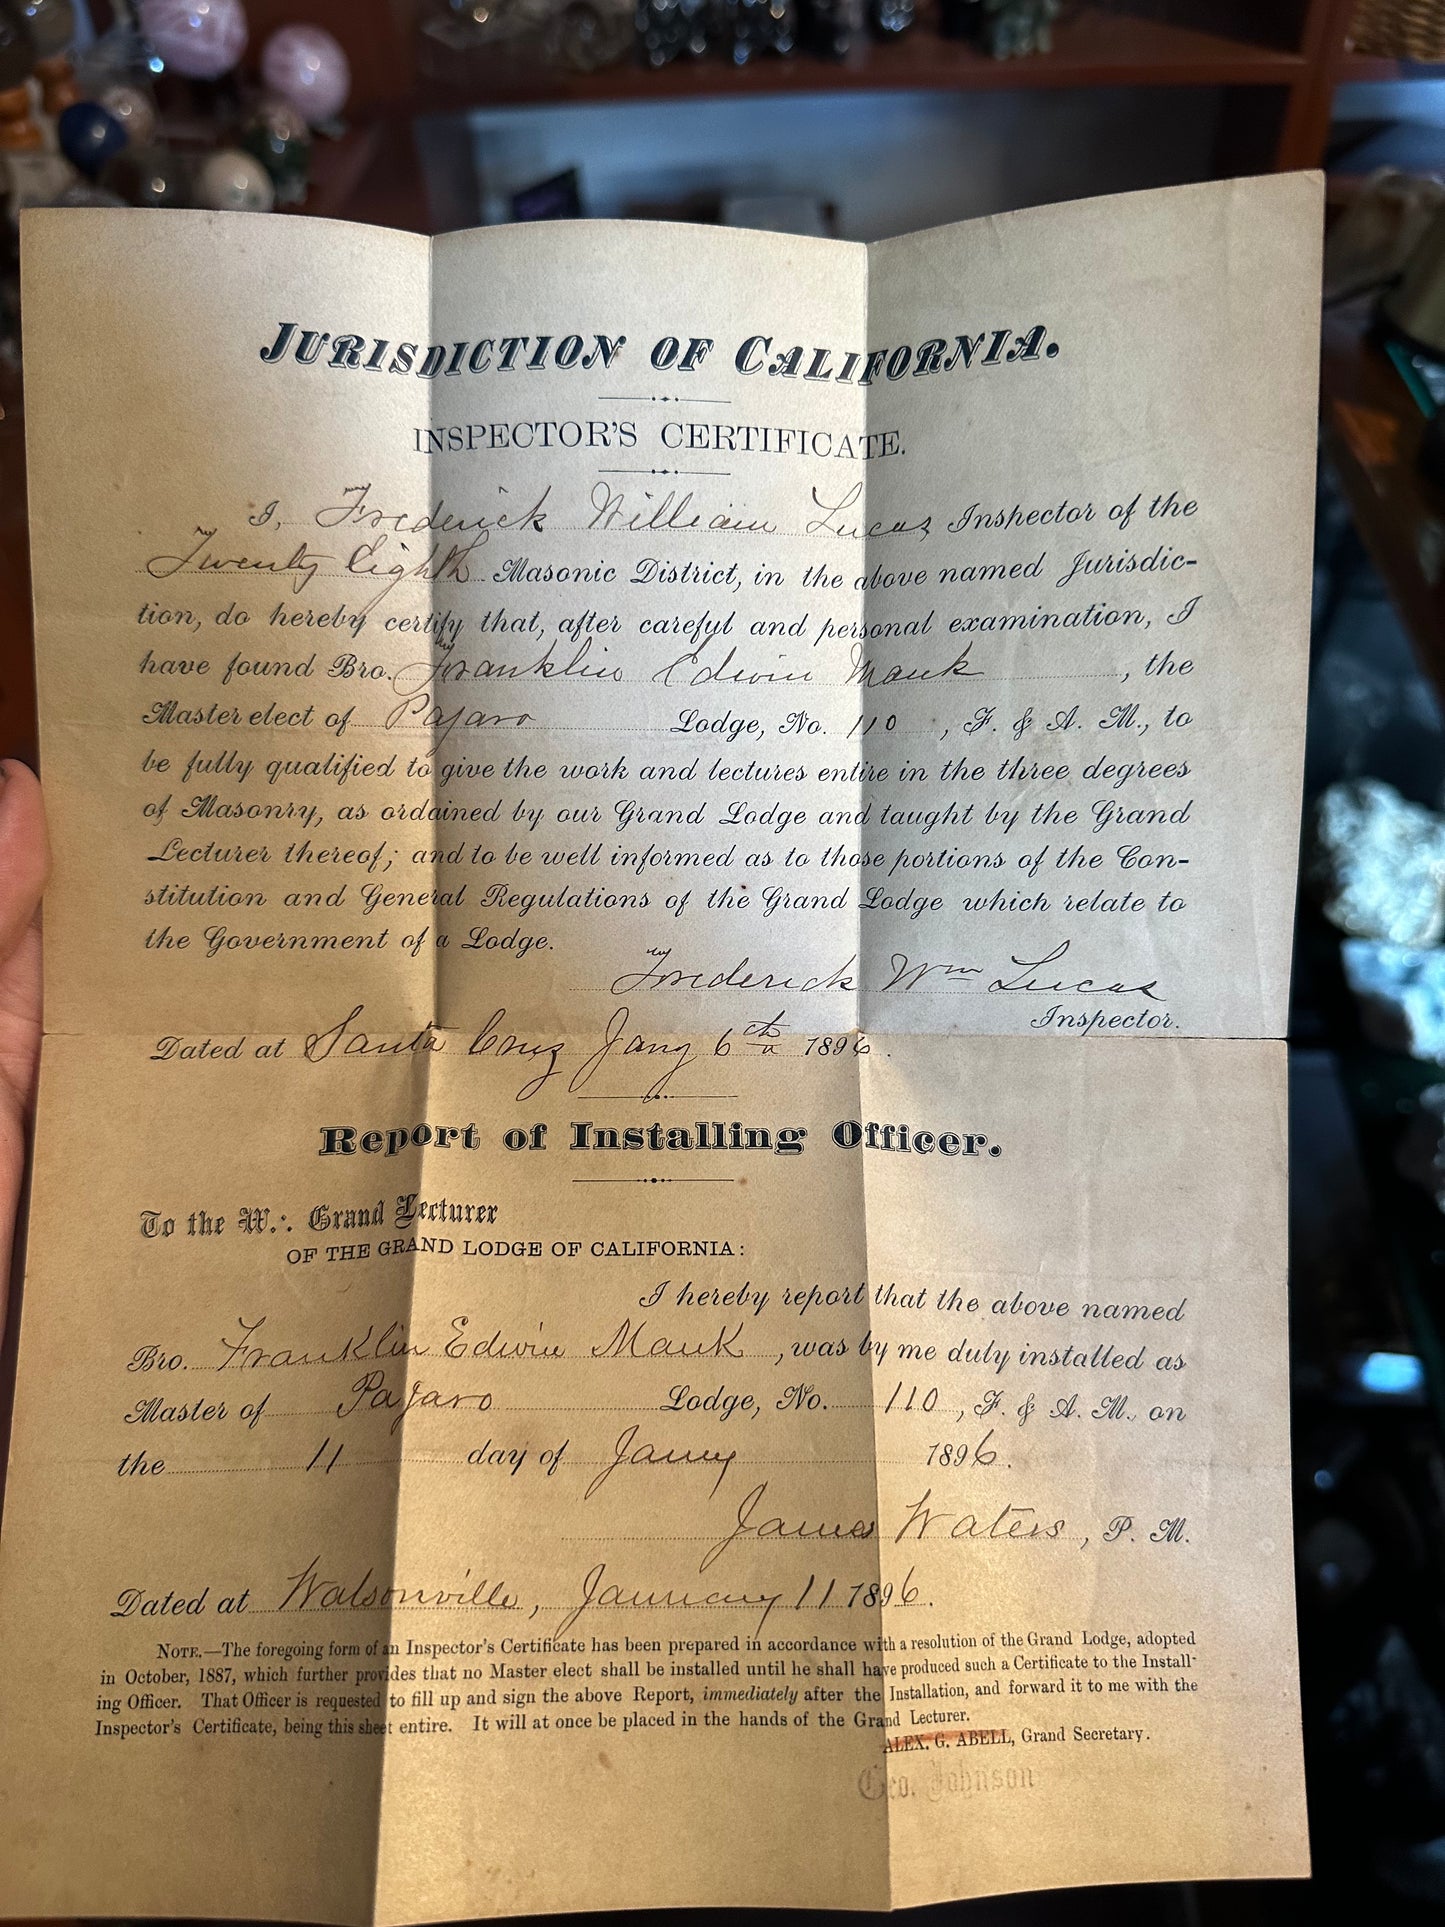 JURISDICTION OF CALIFORNIA.
INSPECTOR'S CERTIFICATE.
I, Frederick William Lucas Inspector of the
Twenty Eighth Masonic District, in the above named Jurisdic-
tion, do hereby certify that, after careful and personal examination, I
have found Bro. Franklin Edwin Mauk, the
Master elect of Pajaro Lodge, No. 110, F. & A. M., to
be fully qualified to give the work and lectures entire in the three degrees
of Masonry, as ordained by our Grand Lodge and taught by the Grand
Lecturer thereof; and to be well informed as to those portions of the Con-
stitution and General Regulations of the Grand Lodge which relate to
the Government of a Lodge.
Frederick Wm Lucas
Inspector.
Dated at Santa Cruz Jany 6th 1896.
Report of Installing Officer.
To the W.∴ Grand Lecturer
OF THE GRAND LODGE OF CALIFORNIA:
I hereby report that the above named
Bro. Franklin Edwin Mauk, was by me duly installed as
Master of Pajaro Lodge, No. 110, F. & A. M., on
the 11 day of Jany 1896.
James Waters, P. M.
Dated at Watsonville, January 11 1896.
NOTE.—The foregoing form of an Inspector's Certificate has been prepared in accordance with a resolution of the Grand Lodge, adopted
in October, 1887, which further provides that no Master elect shall be installed until he shall have produced such a Certificate to the Install-
ing Officer. That Officer is requested to fill up and sign the above Report, immediately after the Installation, and forward it to me with the
Inspector's Certificate, being this sheet entire. It will at once be placed in the hands of the Grand Lecturer.
ALEX. G. ABELL, Grand Secretary.
Geo. Johnson